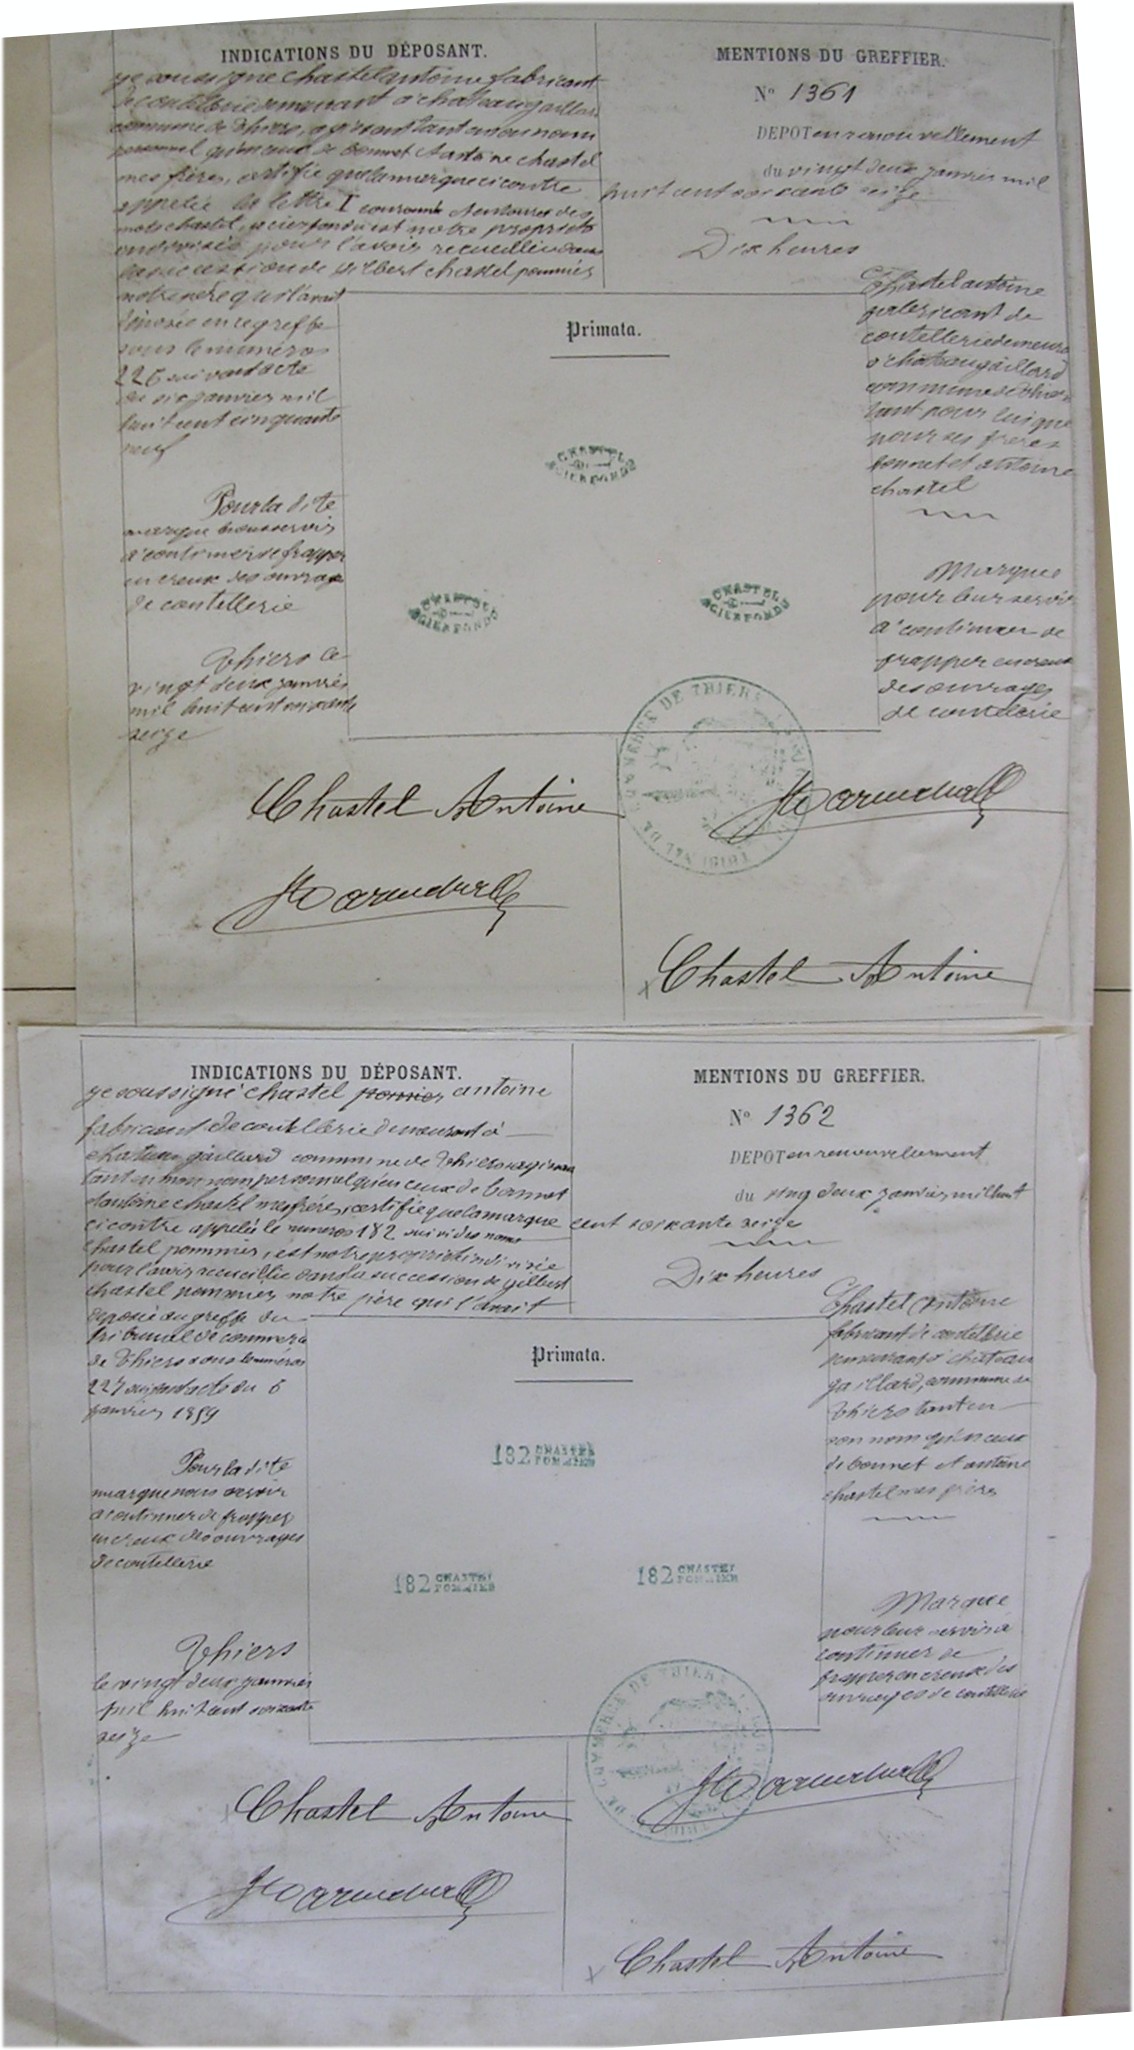 INDICATIONS DU DÉPOSANT.
je soussigné chastel antoine fabricant
de coutellerie demeurant a chateaugaillard
commune de thiers, agissant tant en mon nom
personnel qu'en ceux de bonnet Antoine chastel
mes frères, certifie que la marque ci contre
appelée la lettre I couronné entourer des
mots chastel, acierfondu est notre propriété
indivisée pour l'avoir recueillie dans
la succession de gilbert chastel pommier
notre père qu'il avait
déposée en ce greffe
sous le numéros
226 suivant acte
du six janvier mil
huit cent cinquante
neuf
Pour la dite
marque nous servir
a continuer de frapper
en creux des ouvrages
de coutellerie
Thiers le
vingt deux janvier
mil huit cent soixante
seize
MENTIONS DU GREFFIER.
N° 1361
DEPOT en renouvellement
du vingt deux janvier mil
huit cent soixante seize
Dix heures
Chastel antoine
fabricant de
coutellerie demeurant
a chateaugaillard
commune de thiers
tant pour lui que
pour ses frères
bonnet et antoine
chastel
Marque
pour leur servir
a continuer de
frapper en creux
des ouvrages
de coutellerie
Primata.
CHASTEL
ACIERFONDU
CHASTEL
ACIERFONDU
CHASTEL
ACIERFONDU
TRIBUNAL DE COMMERCE DE THIERS
Chastel Antoine
Chastel Antoine
INDICATIONS DU DÉPOSANT.
je soussigné chastel pommier antoine
fabricant de coutellerie demeurant a
chateau gaillard commune de thiers agissant
tant en mon nom personnel qu'en ceux de bonnet
Antoine chastel mes frères, certifie que la marque
ci contre appelée le numeros 182 suivi des noms
chastel pommier, est notre propriété indivisée
pour l'avoir recueillie dans la succession de gilbert
chastel pommier notre père qui l'avait
déposée au greffe du
tribunal de commerce
de thiers sous le numéros
227 suivant acte du 6
janvier 1859
Pour la dite
marque nous servir
a continuer de frapper
en creux des ouvrages
de coutellerie
Thiers
le vingt deux janvier
mil huit cent soixante
seize
MENTIONS DU GREFFIER.
N° 1362
DEPOT en renouvellement
du vingt deux janvier mil huit
cent soixante seize
Dix heures
Chastel Antoine
fabricant de coutellerie
demeurant a chateau
gaillard, commune de
thiers tant en
son nom qu'en ceux
de bonnet et antoine
chastel mes frères
Marque
pour leur servir a
continuer de
frapper en creux des
ouvrages de coutellerie
Primata.
182 CHASTEL
POMMIER
182 CHASTEL
POMMIER
182 CHASTEL
POMMIER
TRIBUNAL DE COMMERCE DE THIERS
Chastel Antoine
Chastel Antoine